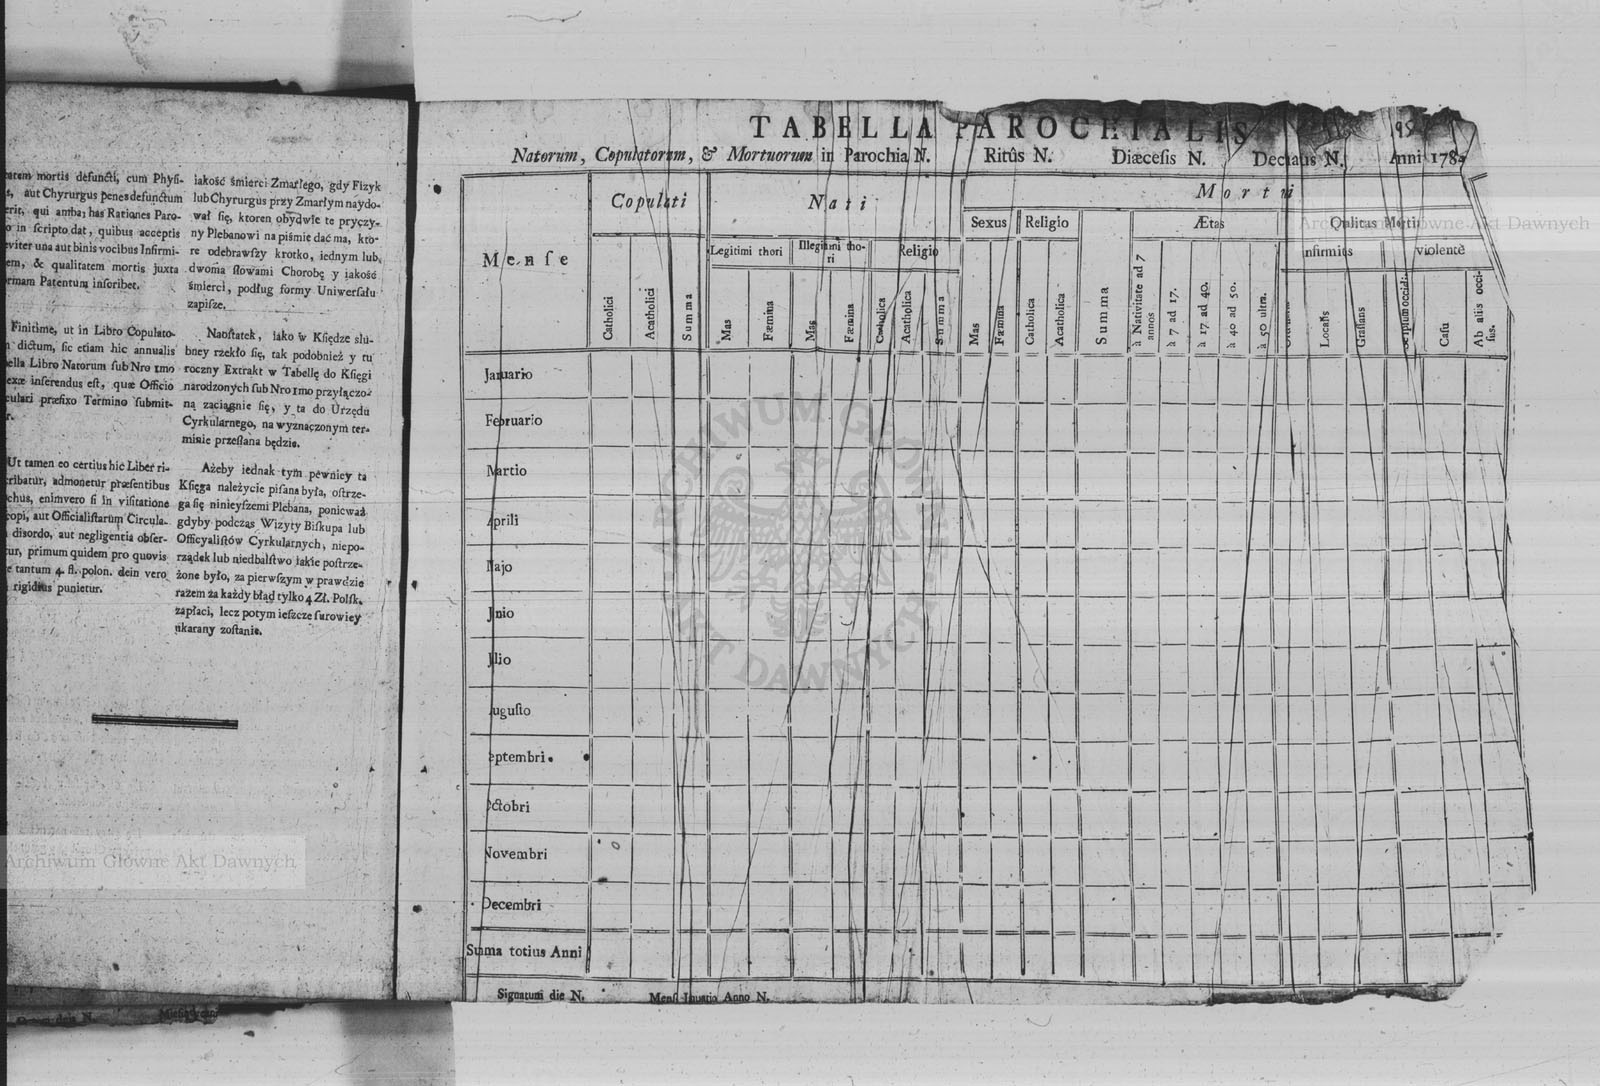 mortis defuncti, cum Physi-
aut Chyrurgus penes defunctum
qui ambas has Rationes Paro-
in scripto dat, quibus acceptis
una aut binis vocibus Infirmi-
& qualitatem mortis juxta
Patentum inscribet.
Finitime, ut in Libro Copulato-
dictum, sic etiam hic annualis
Libro Natorum sub Nro 1mo
inserendus est, quæ Officio
præfixo Termino submit-
Ut tamen eo certius hic Liber ri-
admonetur præsentibus
enimvero si in visitatione
aut Officialistarum Circula-
disordo, aut negligentia obser-
primum quidem pro quovis
tantum 4. fl. polon. dein vero
rigidius punietur.
iakość śmierci Zmarłego, gdy Fizyk
lub Chyrurgus przy Zmarłym naydo-
wał się, ktoren obydwie te pryczy-
ny Plebanowi na piśmie dać ma, kto-
re odebrawszy krotko, iednym lub
dwoma słowami Chorobę y iakość
śmierci, podług formy Uniwersału
zapisze.
Naostatek, iako w Księdze slu-
bney rzekło się, tak podobnież y tu
roczny Extrakt w Tabellę do Księgi
narodzonych sub Nro 1mo przyłączo-
ną zaciągnie się, y ta do Urzędu
Cyrkularnego, na wyznaczonym ter-
minie przesłana będzie.
Ażeby iednak tym pewniey ta
Księga należycie pisana była, ostrze-
ga się ninieyszemi Plebana, ponieważ
gdyby podczas Wizyty Biskupa lub
Officyalistów Cyrkularnych, niepo-
rządek lub niedbalstwo iakie postrze-
żone było, za pierwszym w prawdzie
razem za każdy błąd tylko 4 Zł. Polsk.
zapłaci, lecz potym ieszcze surowiey
ukarany zostanie.
TABELLA PAROCHIALIS
95
Natorum, Copulatorum, & Mortuorum in Parochia N. Ritûs N. Diæcesis N. Decanatus N. Anni 1784
Mense
Copulati
Nati
Mortui
Sexus Religio
Ætas
Qualitas Mortis
Legitimi thori
Illegitimi tho-
ri
Religio
Infirmitas
violentè
Catholici
Acatholici
Summa
Mas
Fæmina
Mas
Fæmina
Catholica
Acatholica
Summa
Mas
Fæmina
Catholica
Acatholica
Summa
à Nativitate ad 7
annos
à 7 ad 17.
à 17 ad 40.
à 40 ad 50.
à 50 ultra.
Localis
Grassans
Casu
Ab aliis occi-
sus.
Januario
Februario
Martio
Aprili
Majo
Junio
Julio
Augusto
Septembri
Octobri
Novembri
Decembri
Summa totius Anni
Signatum die N. Mensi Januario Anno N.
Archiwum Główne Akt Dawnych
Archiwum Główne Akt Dawnych
ARCHIWUM GŁÓWNE AKT DAWNYCH